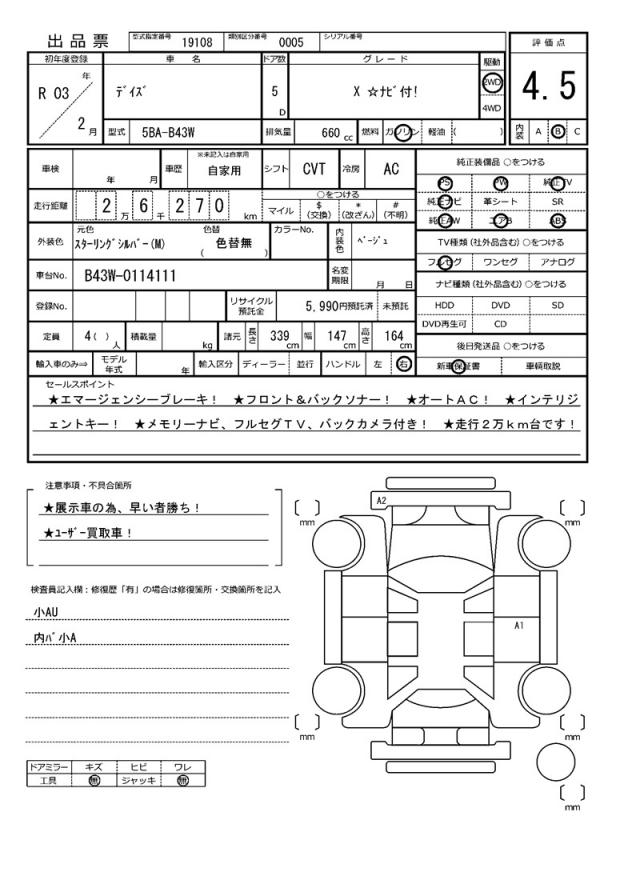 出品票 型式指定番号 19108 類別区分番号 0005 シリアル番号
評価点
初年度登録 車名 ドア数 グレード 駆動
R 03 年 ﾃﾞｲｽﾞ 5 D X ☆ﾅﾋﾞ付! 2WD 4.5
4WD
2 月 型式 5BA-B43W 排気量 660 cc 燃料 ガソリン 軽油 ( ) 内装 A B C
車検 年 月 車歴 ※未記入は自家用 自家用 シフト CVT 冷房 AC
純正装備品 ○をつける
PS PW 純正TV
走行距離 2 万 6 千 2 7 0 km ○をつける
マイル $ (交換) * (改ざん) # (不明)
純正ナビ 革シート SR
純正AW エアB ABS
外装色 元色 ｽﾀｰﾘﾝｸﾞｼﾙﾊﾞｰ(M) 色替 ( 色替無 ) カラーNo. 内装色 ﾍﾞｰｼﾞｭ
TV種類 (社外品含む) ○をつける
フルセグ ワンセグ アナログ
車台No. B43W-0114111 名変期限 月 日
ナビ種類 (社外品含む) ○をつける
登録No. リサイクル預託金 5,990円預託済 未預託
HDD DVD SD
DVD再生可 CD
定員 4( ) 人 積載量 kg 諸元 長さ 339 cm 幅 147 cm 高さ 164 cm
後日発送品 ○をつける
輸入車のみ⇒ モデル年式 年 輸入区分 ディーラー 並行 ハンドル 左 右
新車保証書 車輌取説
セールスポイント
★エマージェンシーブレーキ! ★フロント＆バックソナー! ★オートＡＣ! ★インテリジ
ェントキー! ★メモリーナビ、フルセグＴＶ、バックカメラ付き! ★走行２万ｋｍ台です!
注意事項・不具合箇所
★展示車の為、早い者勝ち!
★ﾕｰｻﾞｰ買取車!
検査員記入欄：修復歴「有」の場合は修復箇所・交換箇所を記入
小AU
内ﾊﾞ小A
A2
mm
mm
A1
mm
mm
mm
ドアミラー キズ ヒビ ワレ
工具 無 ジャッキ 無